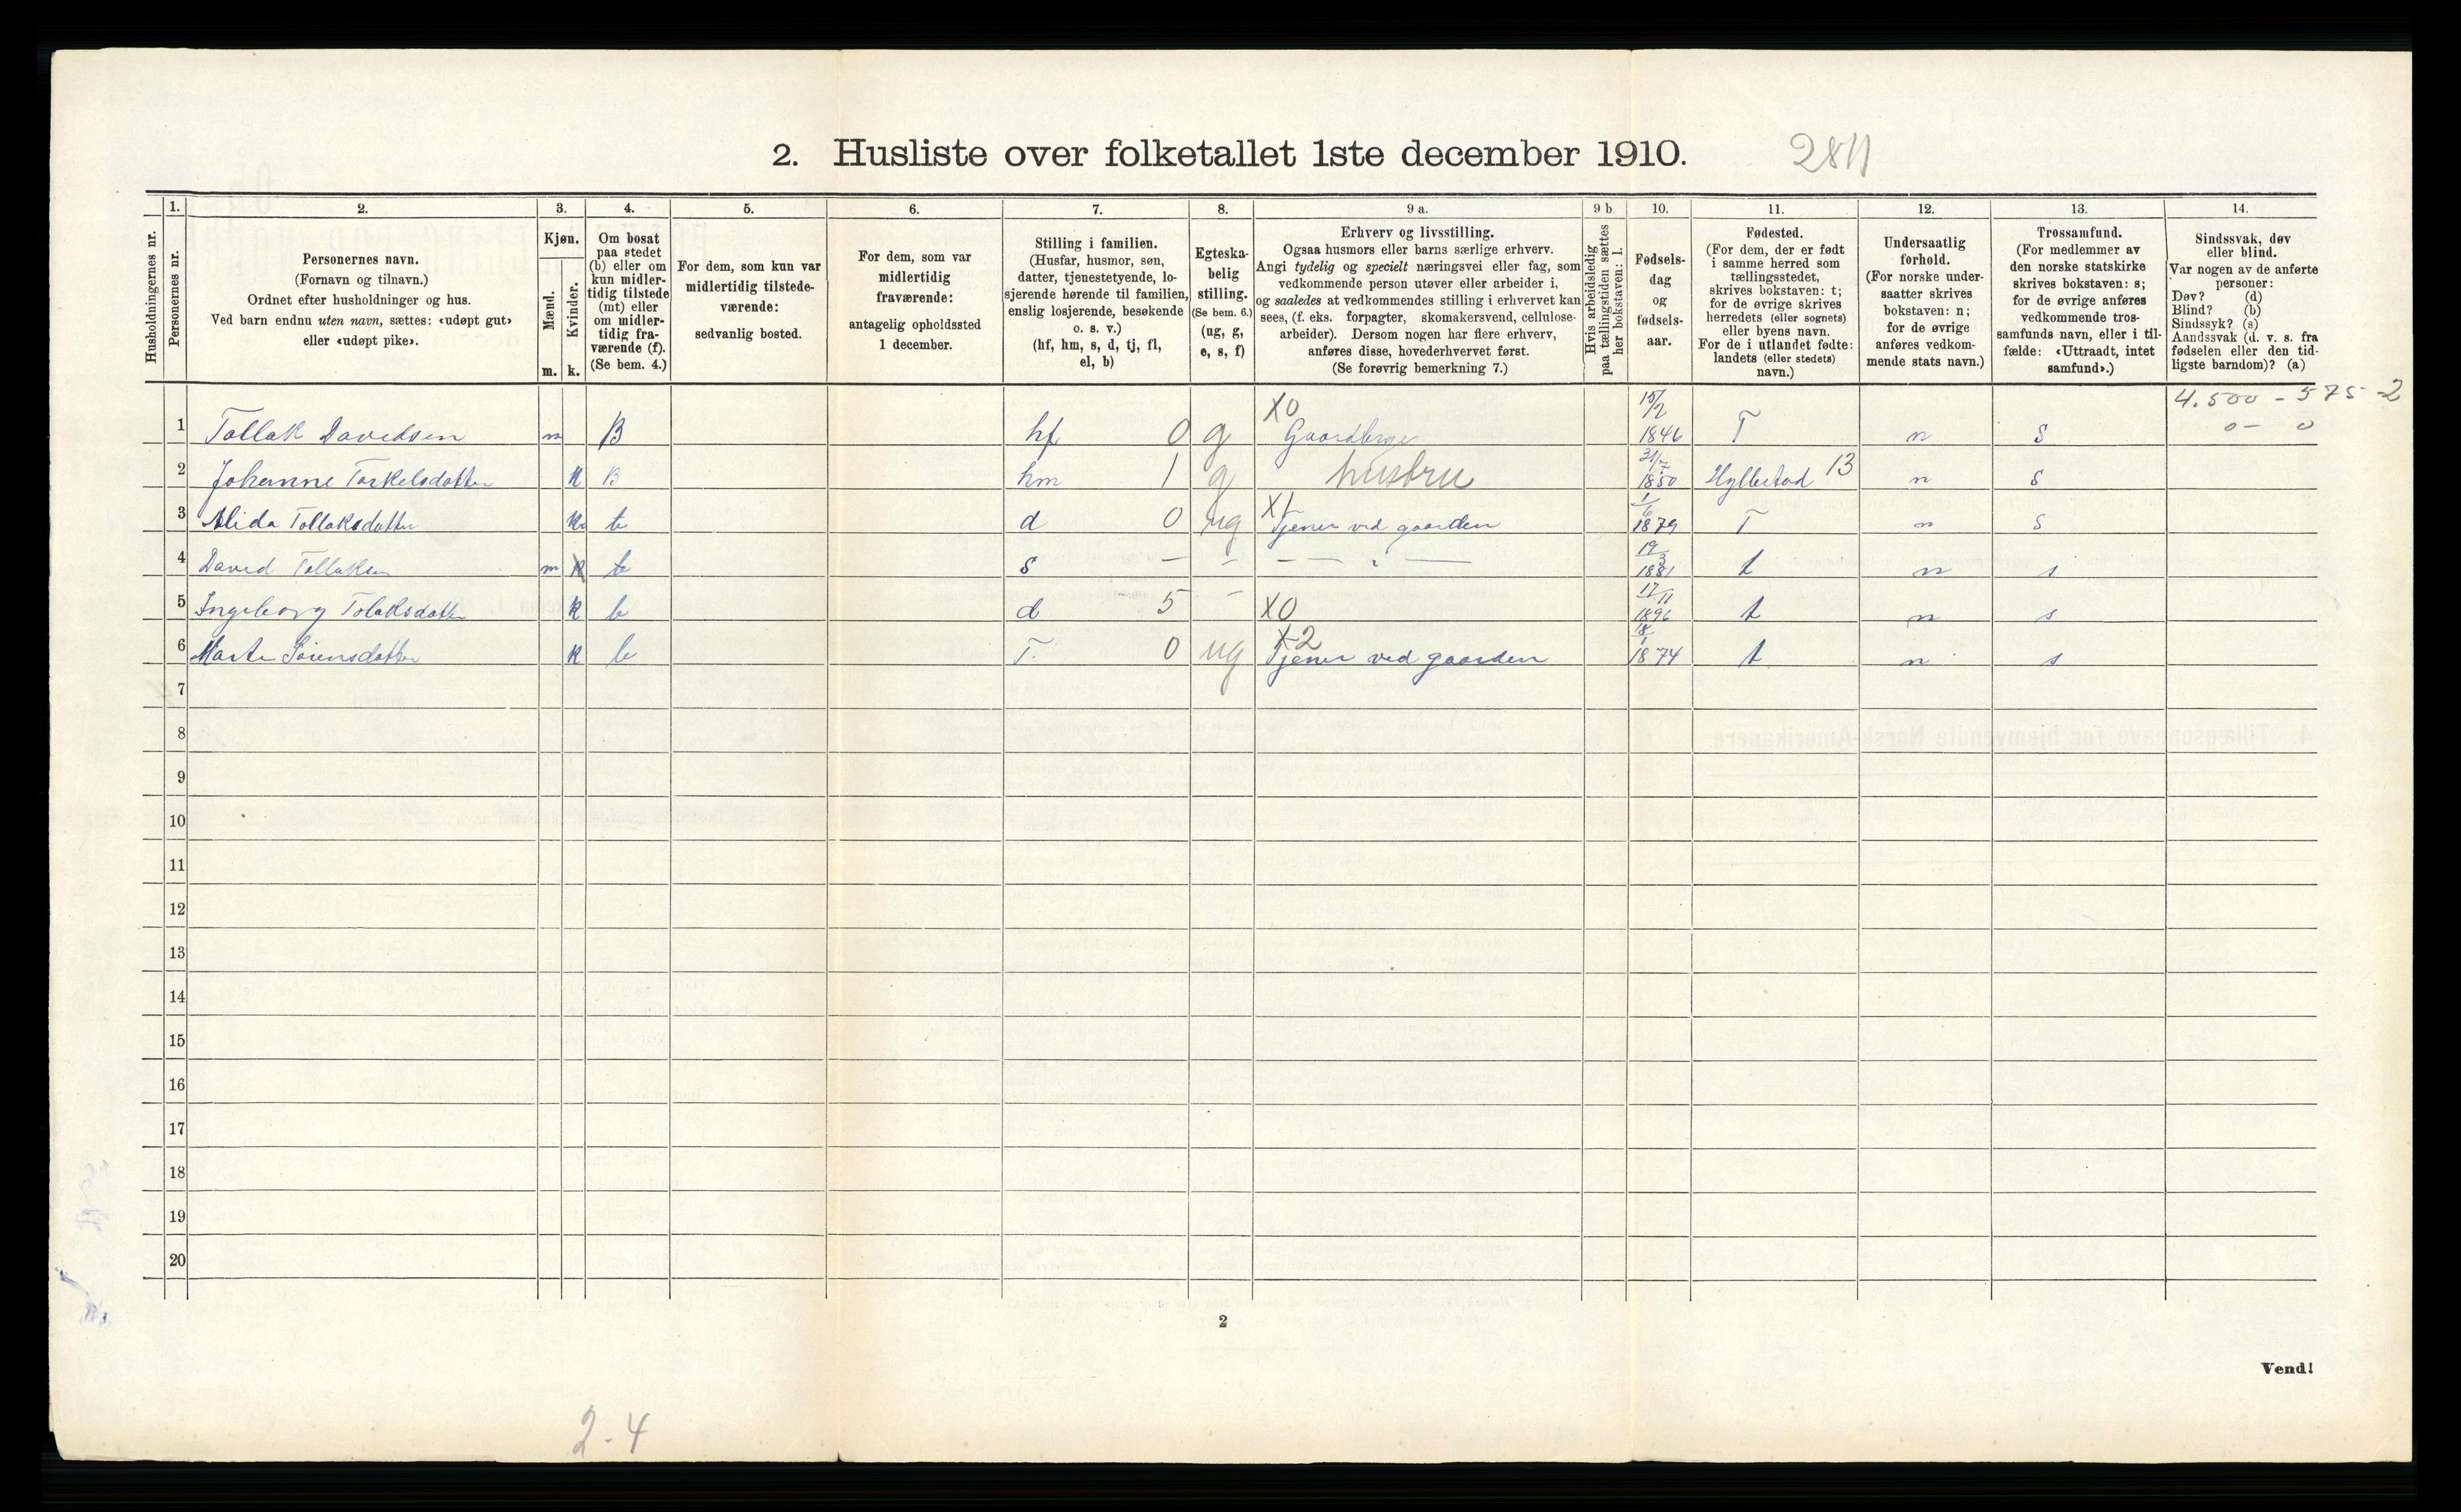 2. Husliste over folketallet 1ste december 1910.
2811
Husholdningernes nr.
1.
Personernes nr.
2.
Personernes navn.
(Fornavn og tilnavn.)
Ordnet efter husholdninger og hus.
Ved barn endnu uten navn, sættes: «udøpt gut»
eller «udøpt pike».
3.
Kjøn.
Mænd.
Kvinder.
m. k.
4.
Om bosat
paa stedet
(b) eller om
kun midler-
tidig tilstede
(mt) eller
om midler-
tidig fra-
værende (f).
(Se bem. 4.)
5.
For dem, som kun var
midlertidig tilstede-
værende:
sedvanlig bosted.
6.
For dem, som var
midlertidig
fraværende:
antagelig opholdssted
1 december.
7.
Stilling i familien.
(Husfar, husmor, søn,
datter, tjenestetyende, lo-
sjerende hørende til familien,
enslig losjerende, besøkende
o. s. v.)
(hf, hm, s, d, tj, fl,
el, b)
8.
Egteska-
belig
stilling.
(Se bem. 6.)
(ug, g,
e, s, f)
9 a.
Erhverv og livsstilling.
Ogsaa husmors eller barns særlige erhverv.
Angi tydelig og specielt næringsvei eller fag, som
vedkommende person utøver eller arbeider i,
og saaledes at vedkommendes stilling i erhvervet kan
sees, (f. eks. forpagter, skomakersvend, cellulose-
arbeider). Dersom nogen har flere erhverv,
anføres disse, hovederhvervet først.
(Se forøvrig bemerkning 7.)
9 b
Hvis arbeidsledig
paa tællingstiden sættes
her bokstaven: l.
10.
Fødsels-
dag
og
fødsels-
aar.
11.
Fødested.
(For dem, der er født
i samme herred som
tællingsstedet,
skrives bokstaven: t;
for de øvrige skrives
herredets (eller sognets)
eller byens navn.
For de i utlandet fødte:
landets (eller stedets)
navn.)
12.
Undersaatlig
forhold.
(For norske under-
saatter skrives
bokstaven: n;
for de øvrige
anføres vedkom-
mende stats navn.)
13.
Trossamfund.
(For medlemmer av
den norske statskirke
skrives bokstaven: s;
for de øvrige anføres
vedkommende tros-
samfunds navn, eller i til-
fælde: «Uttraadt, intet
samfund».)
14.
Sindssvak, døv
eller blind.
Var nogen av de anførte
personer:
Døv? (d)
Blind? (b)
Sindssyk? (s)
Aandssvak (d. v. s. fra
fødselen eller den tid-
ligste barndom)? (a)
4.500 - 575-2
0 - 0
1 Tollak Davedsen m B hf 0 g X0 Gaardbruger 15/2 1846 T n S
2 Johanne Torkelsdatter k B hm 1 g husbru 31/7 1850 Hyllestad 13 n S
3 Alida Tollaksdatter k b d 0 ug X1 Tjener ved gaarden 1/6 1879 T n S
4 David Tollaksen m k b s — — — " — 19/3 1881 t n s
5 Ingeborg Tolaksdatter k b d 5 — X0 17/11 1896 t n s
6 Marte Sørensdatter k b T. 0 ug X2 Tjener ved gaarden 18/1 1874 t n s
7
8
9
10
11
12
13
14
15
16
17
18
19
20
2
Vend!
2-4